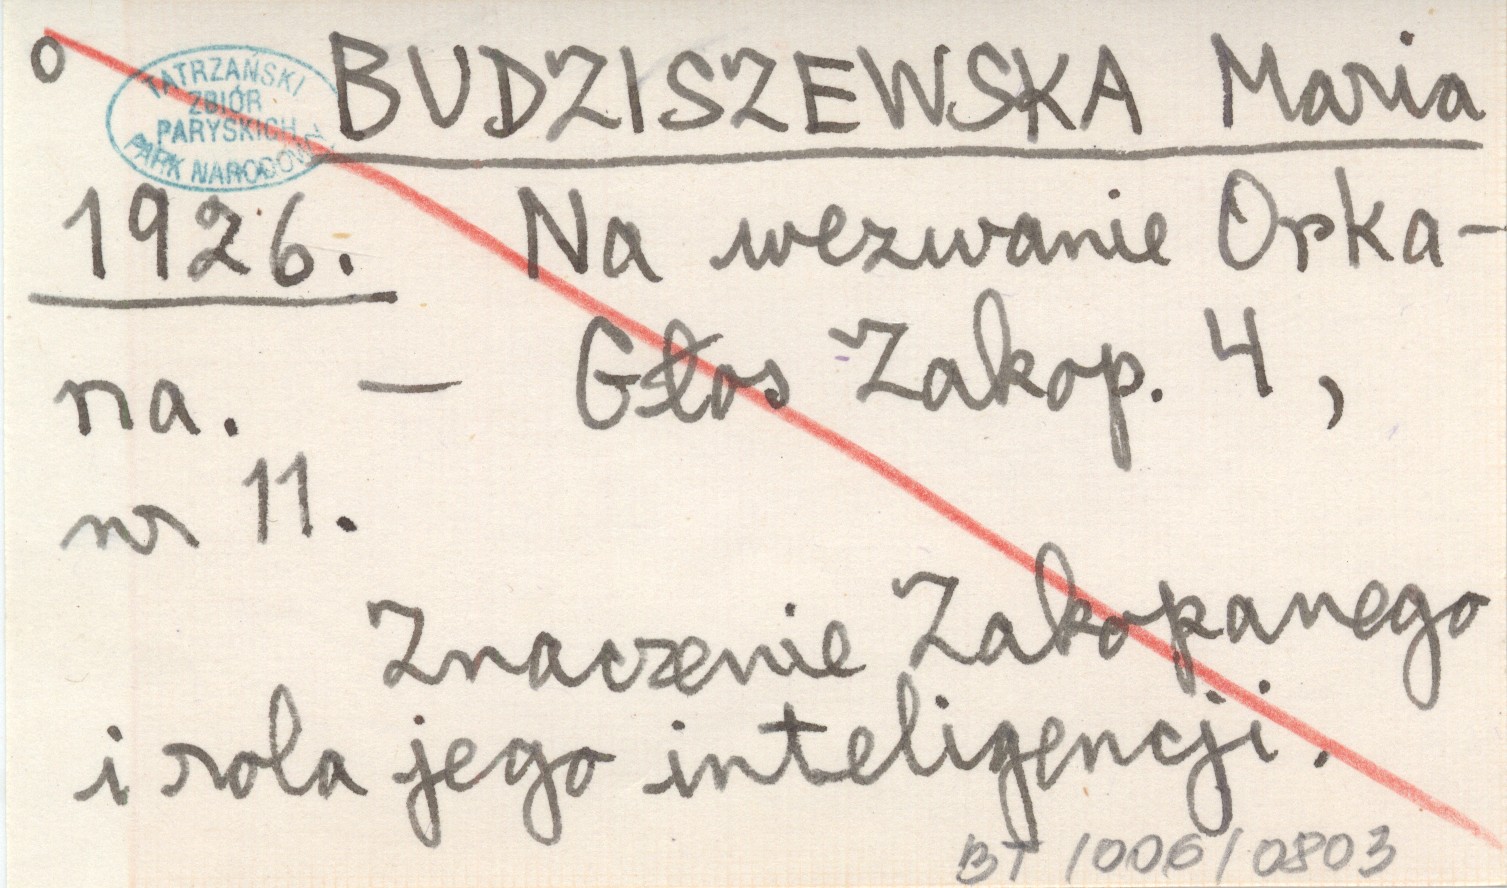 o BUDZISZEWSKA Maria
TATRZAŃSKI
ZBIÓR
PARYSKICH
PARK NARODOWY
1926. Na wezwanie Orka-
na. — Głos Zakop. 4,
nr 11.
Znaczenie Zakopanego
i rola jego inteligencji.
BT /006/0803